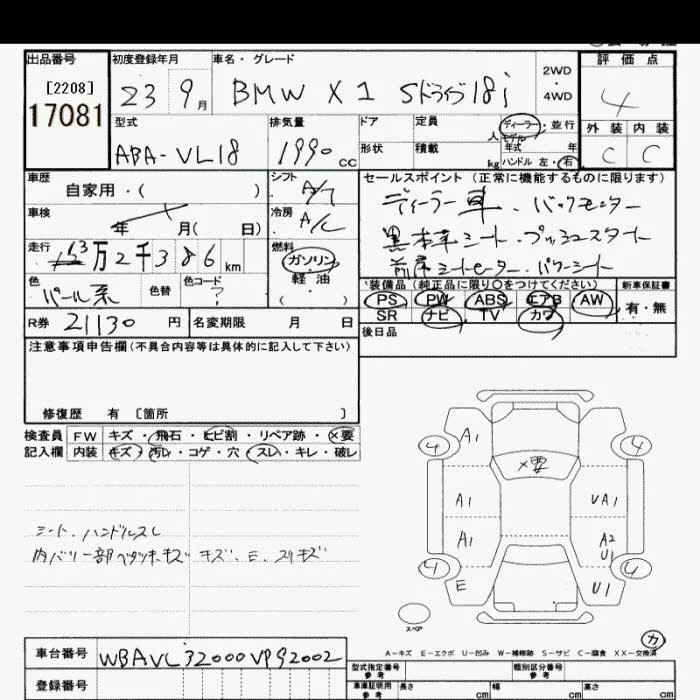 出品番号 初度登録年月 車名・グレード 評価点
[2208] 23 9月 BMW X1 Sドライブ18i 2WD・4WD 4
17081
型式 排気量 ドア 定員 人 ディーラー・並行 外装 内装
モデル年式 年
ABA-VL18 1990cc 形状 積載 kg ハンドル 左・右 C C
車歴 シフト セールスポイント (正常に機能するものに限ります)
自家用・( ) A/T ディーラー車、バックモニター
車検 年 月( 日) 冷房 A/C 黒本革シート・プッシュスタート
走行 3万2千386km 燃料 ガソリン・軽油・( ) 前席シートヒーター・パワーシート
色 パール系 色替 色コード ? 装備品 (純正品に限り○をつけてください) 新車保証書
PS PW ABS エアB AW 有・無
R券 21130円 名変期限 月 日 SR ナビ TV カワ
後日品
注意事項申告欄(不具合内容等は具体的に記入して下さい)
修復歴 有 [箇所 ]
検査員 FW キズ・飛石・ヒビ割・リペア跡・×要
記入欄 内装 キズ・汚レ・コゲ・穴・スレ・キレ・破レ
4 A1 4
×要
A1 UA1
A1 A2
U1
4 E U1 4
シート、ハンドルスレ
内バリ一部ベタツキ、キズ キズ、E、スリキズ
スペア
カ
A-キズ E-エクボ U-凹み W-補修跡 S-サビ C-腐食 XX-交換済
車台番号 WBAVL32000VP92002
登録番号
型式指定番号 参考 類別区分番号 参考
車庫証明用 参考 長さ cm 幅 cm 高さ cm